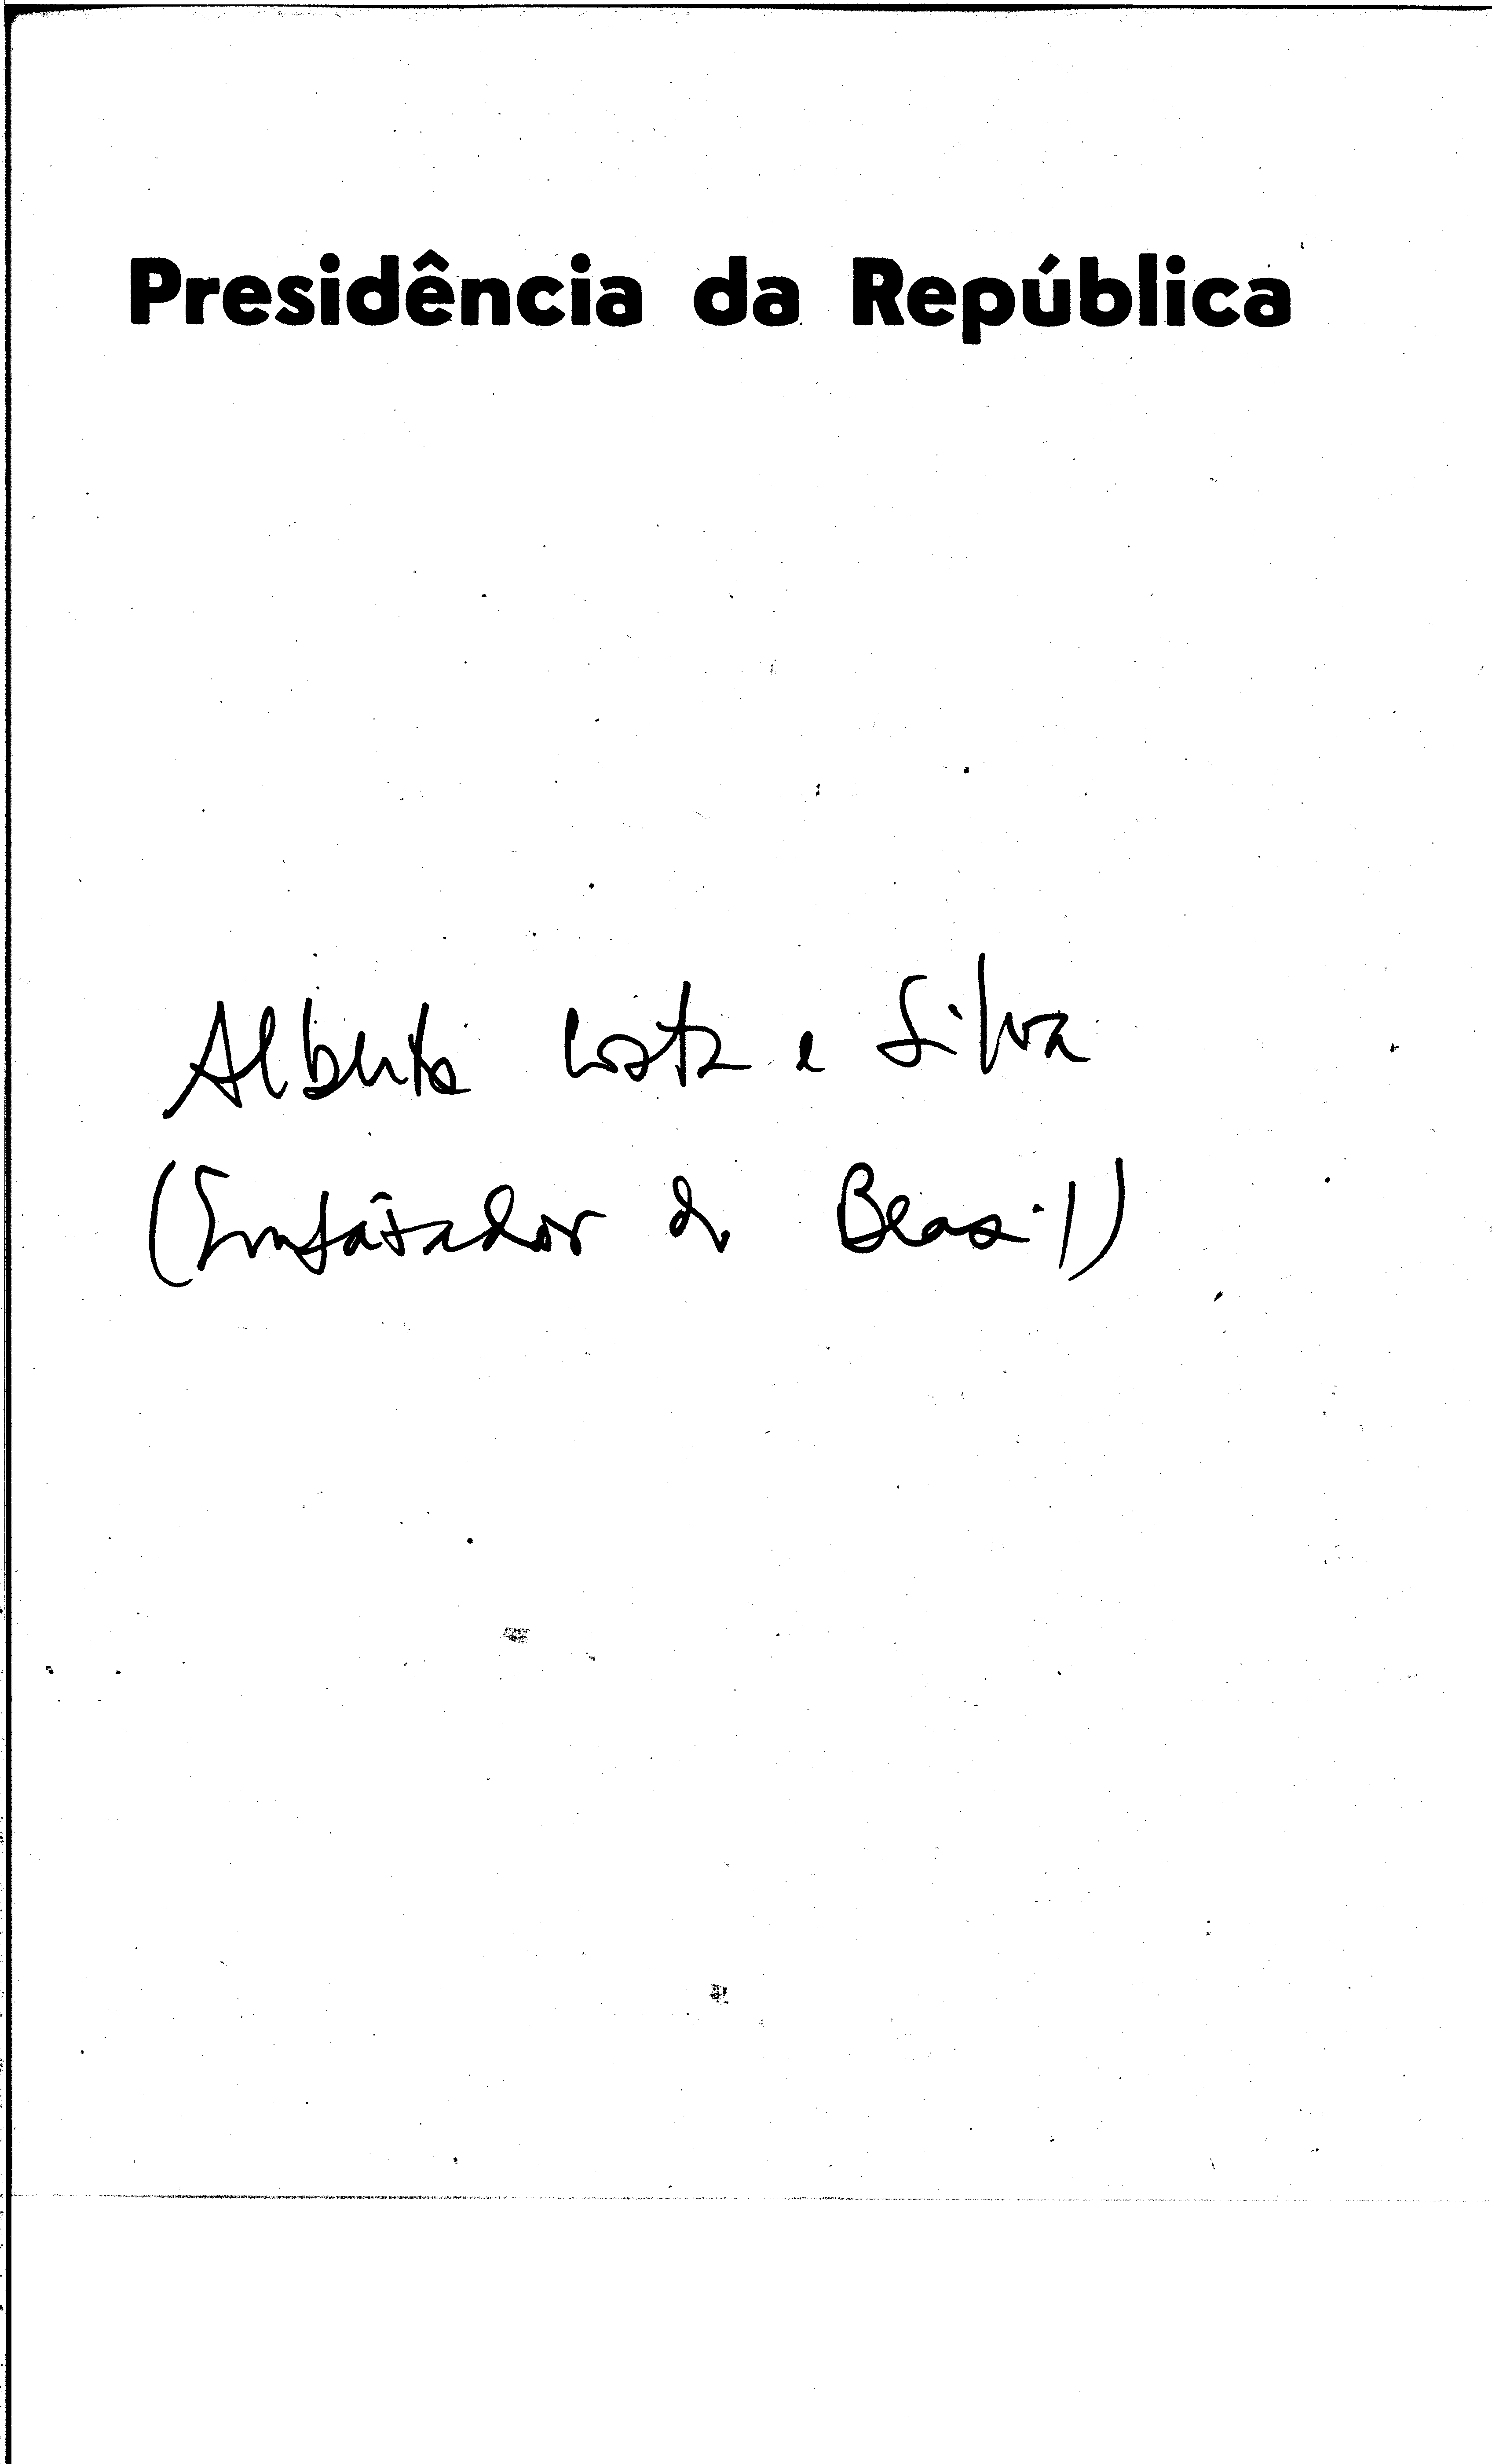 Presidência da República
Alberto Costa e Silva
(Embaixador do Brasil)